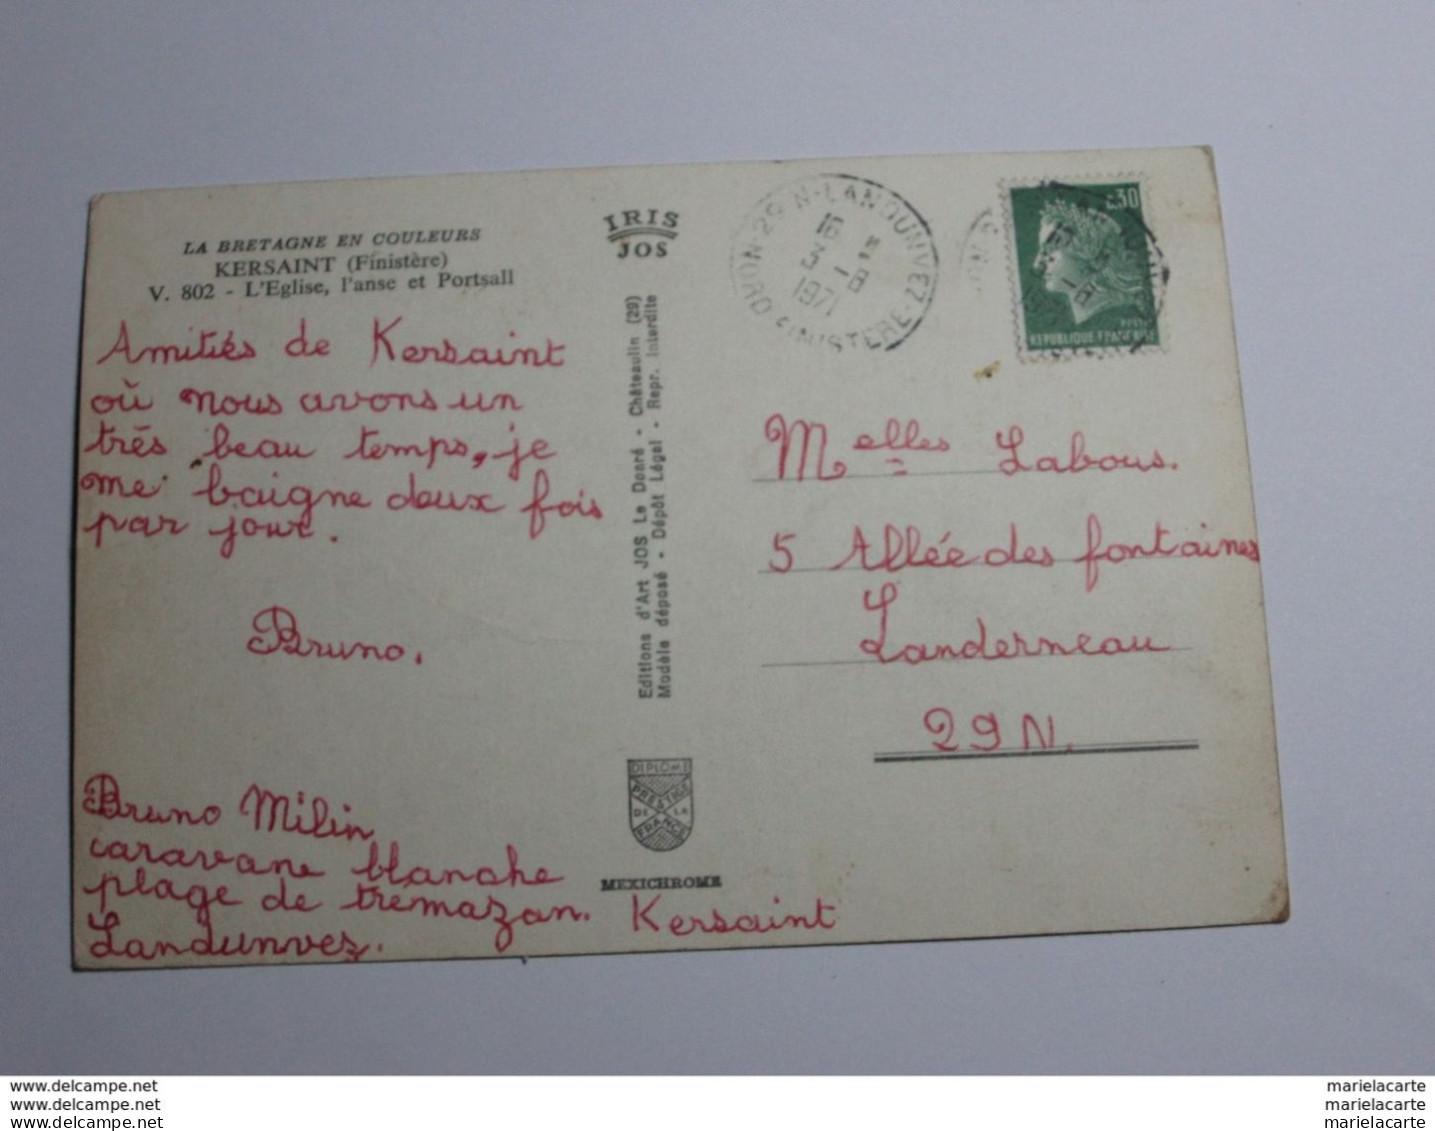 LA BRETAGNE EN COULEURS
KERSAINT (Finistère)
V. 802 - L'Eglise, l'anse et Portsall
Amitiés de Kersaint
où nous avons un
très beau temps, je
me baigne deux fois
par jour.
Bruno.
Bruno Milin
caravane blanche
plage de trémazan. Kersaint
Landunvez.
IRIS
JOS
Editions d'Art JOS Le Doaré - Châteaulin (29)
Modèle déposé - Dépôt Légal - Repr. Interdite
DIPLOME
PRESTIGE
DE LA
FRANCE
MEXICHROME
29 N-LANDUNVEZ
NORD FINISTERE
16
1971
0.30
POSTES
REPUBLIQUE FRANÇAISE
Melles Labous.
5 Allée des fontaines
Landerneau
29 N.
www.delcampe.net
www.delcampe.net
www.delcampe.net
marielacarte
marielacarte
marielacarte